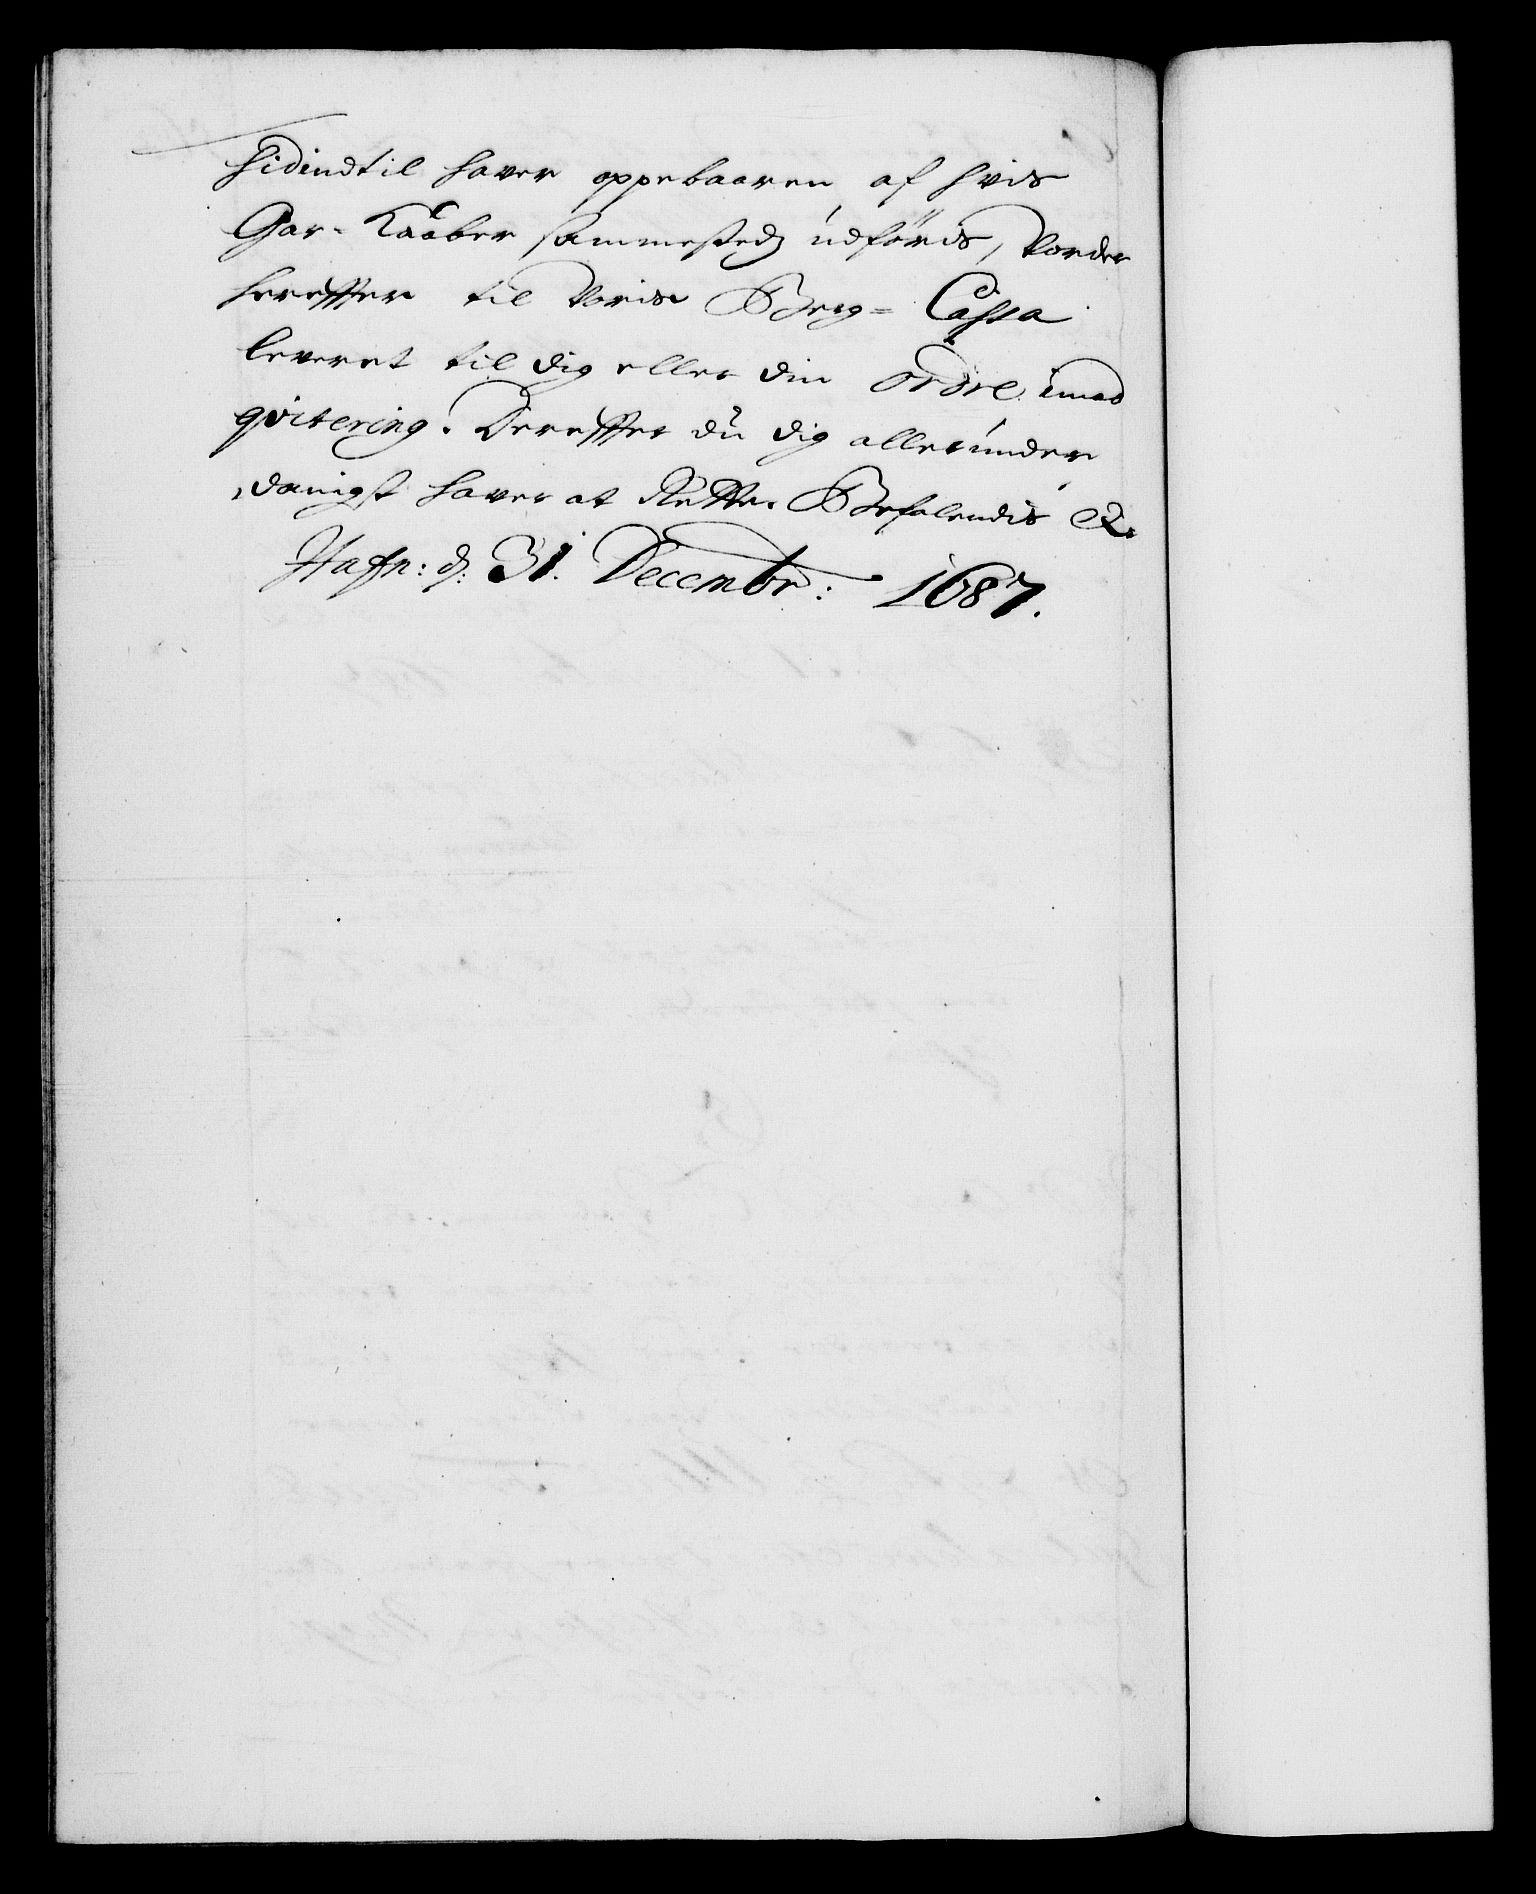 hidindtil haver oppebaaren af hvis
Gar-Kaaber sammesteds udföris, vorder
hereffter til Voris Berg= Cassa
leveret til dig eller din ordre imod
qvitering. Dereffter du dig allerunder
danigst haver at Rette. Befalendis &.
Hafn: d: 31. Decembr: 1687.